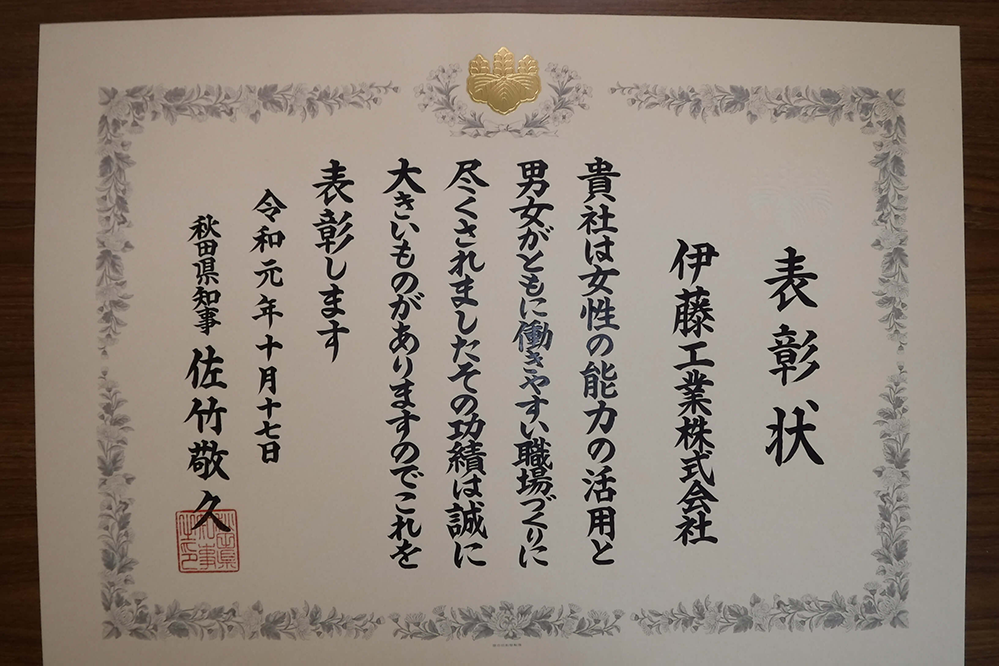 表彰状
伊藤工業株式会社
貴社は女性の能力の活用と
男女がともに働きやすい職場づくりに
尽くされましたその功績は誠に
大きいものがありますのでこれを
表彰します
令和元年十月十七日
秋田県知事 佐竹敬久